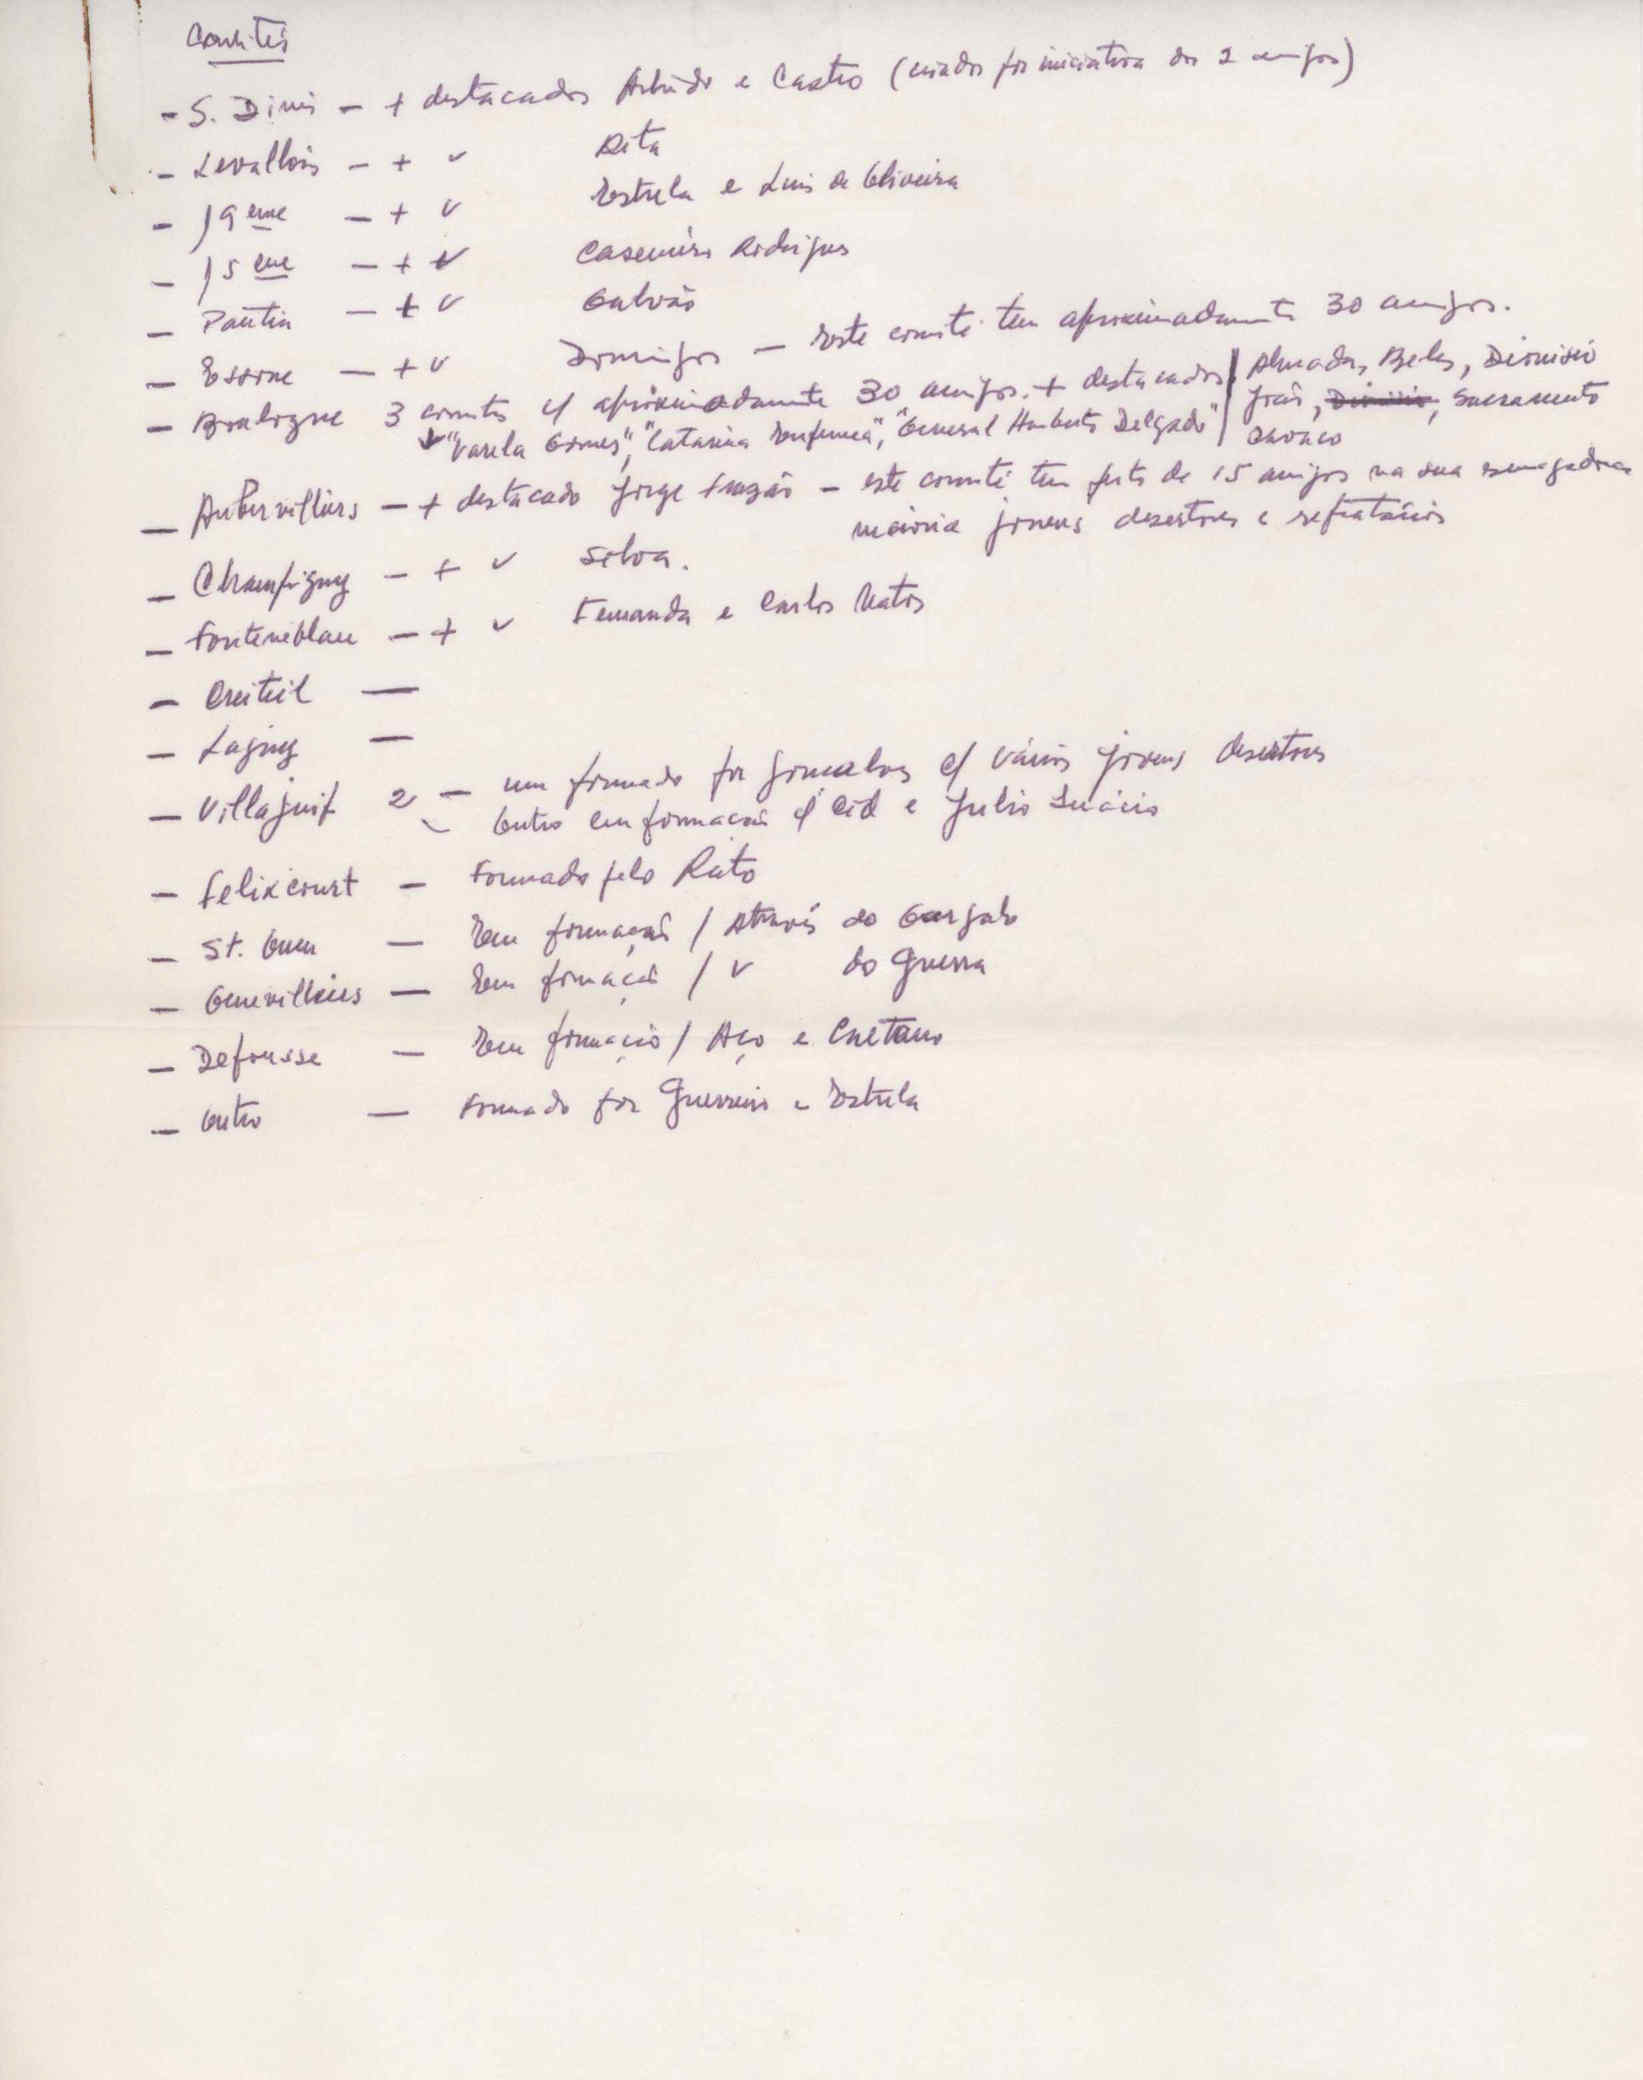 Comités
- S. Dinis - + destacados Arlindo e Castro (criados por iniciativa dos 2 amigos)
- Levallois - + " Rita
- 19 eme - + " Estrela e Luis de Oliveira
- 15 eme - + " Casemiro Rodrigues
- Pantin - + " Galvão
- Esсone - + " Domingos - Este comité tem aproximadamente 30 amigos.
- Boulogne 3 comités c/ aproximadamente 30 amigos. + destacados Almada, Beles, Dionisio
"Varela Gomes", "Catarina Eufemea", "General Humberto Delgado" João, Sacramento
- Aubervilliers - + destacado Jorge Frazão - este comité tem perto de 15 amigos na sua esmagadora
maioria jovens desertores e refratários
- Champigny - + " Silva.
- Fonteneblau - + " Fernanda e Carlos Matos
- Creiteil -
- Lagny -
- Villajuif 2 - um formado por Gonçalves c/ vários jovens desertores
- Outro em formação c/ Cid e Julio Inácio
- Felixcourt - Formado pelo Rato
- St. Ouen - Em formação / Através do Gargalo
- Genevilliers - Em formação / " do Guerra
- Defousse - Em formação / Aço e Caetano
- Outro - Formado por Guerreiro e Estrela